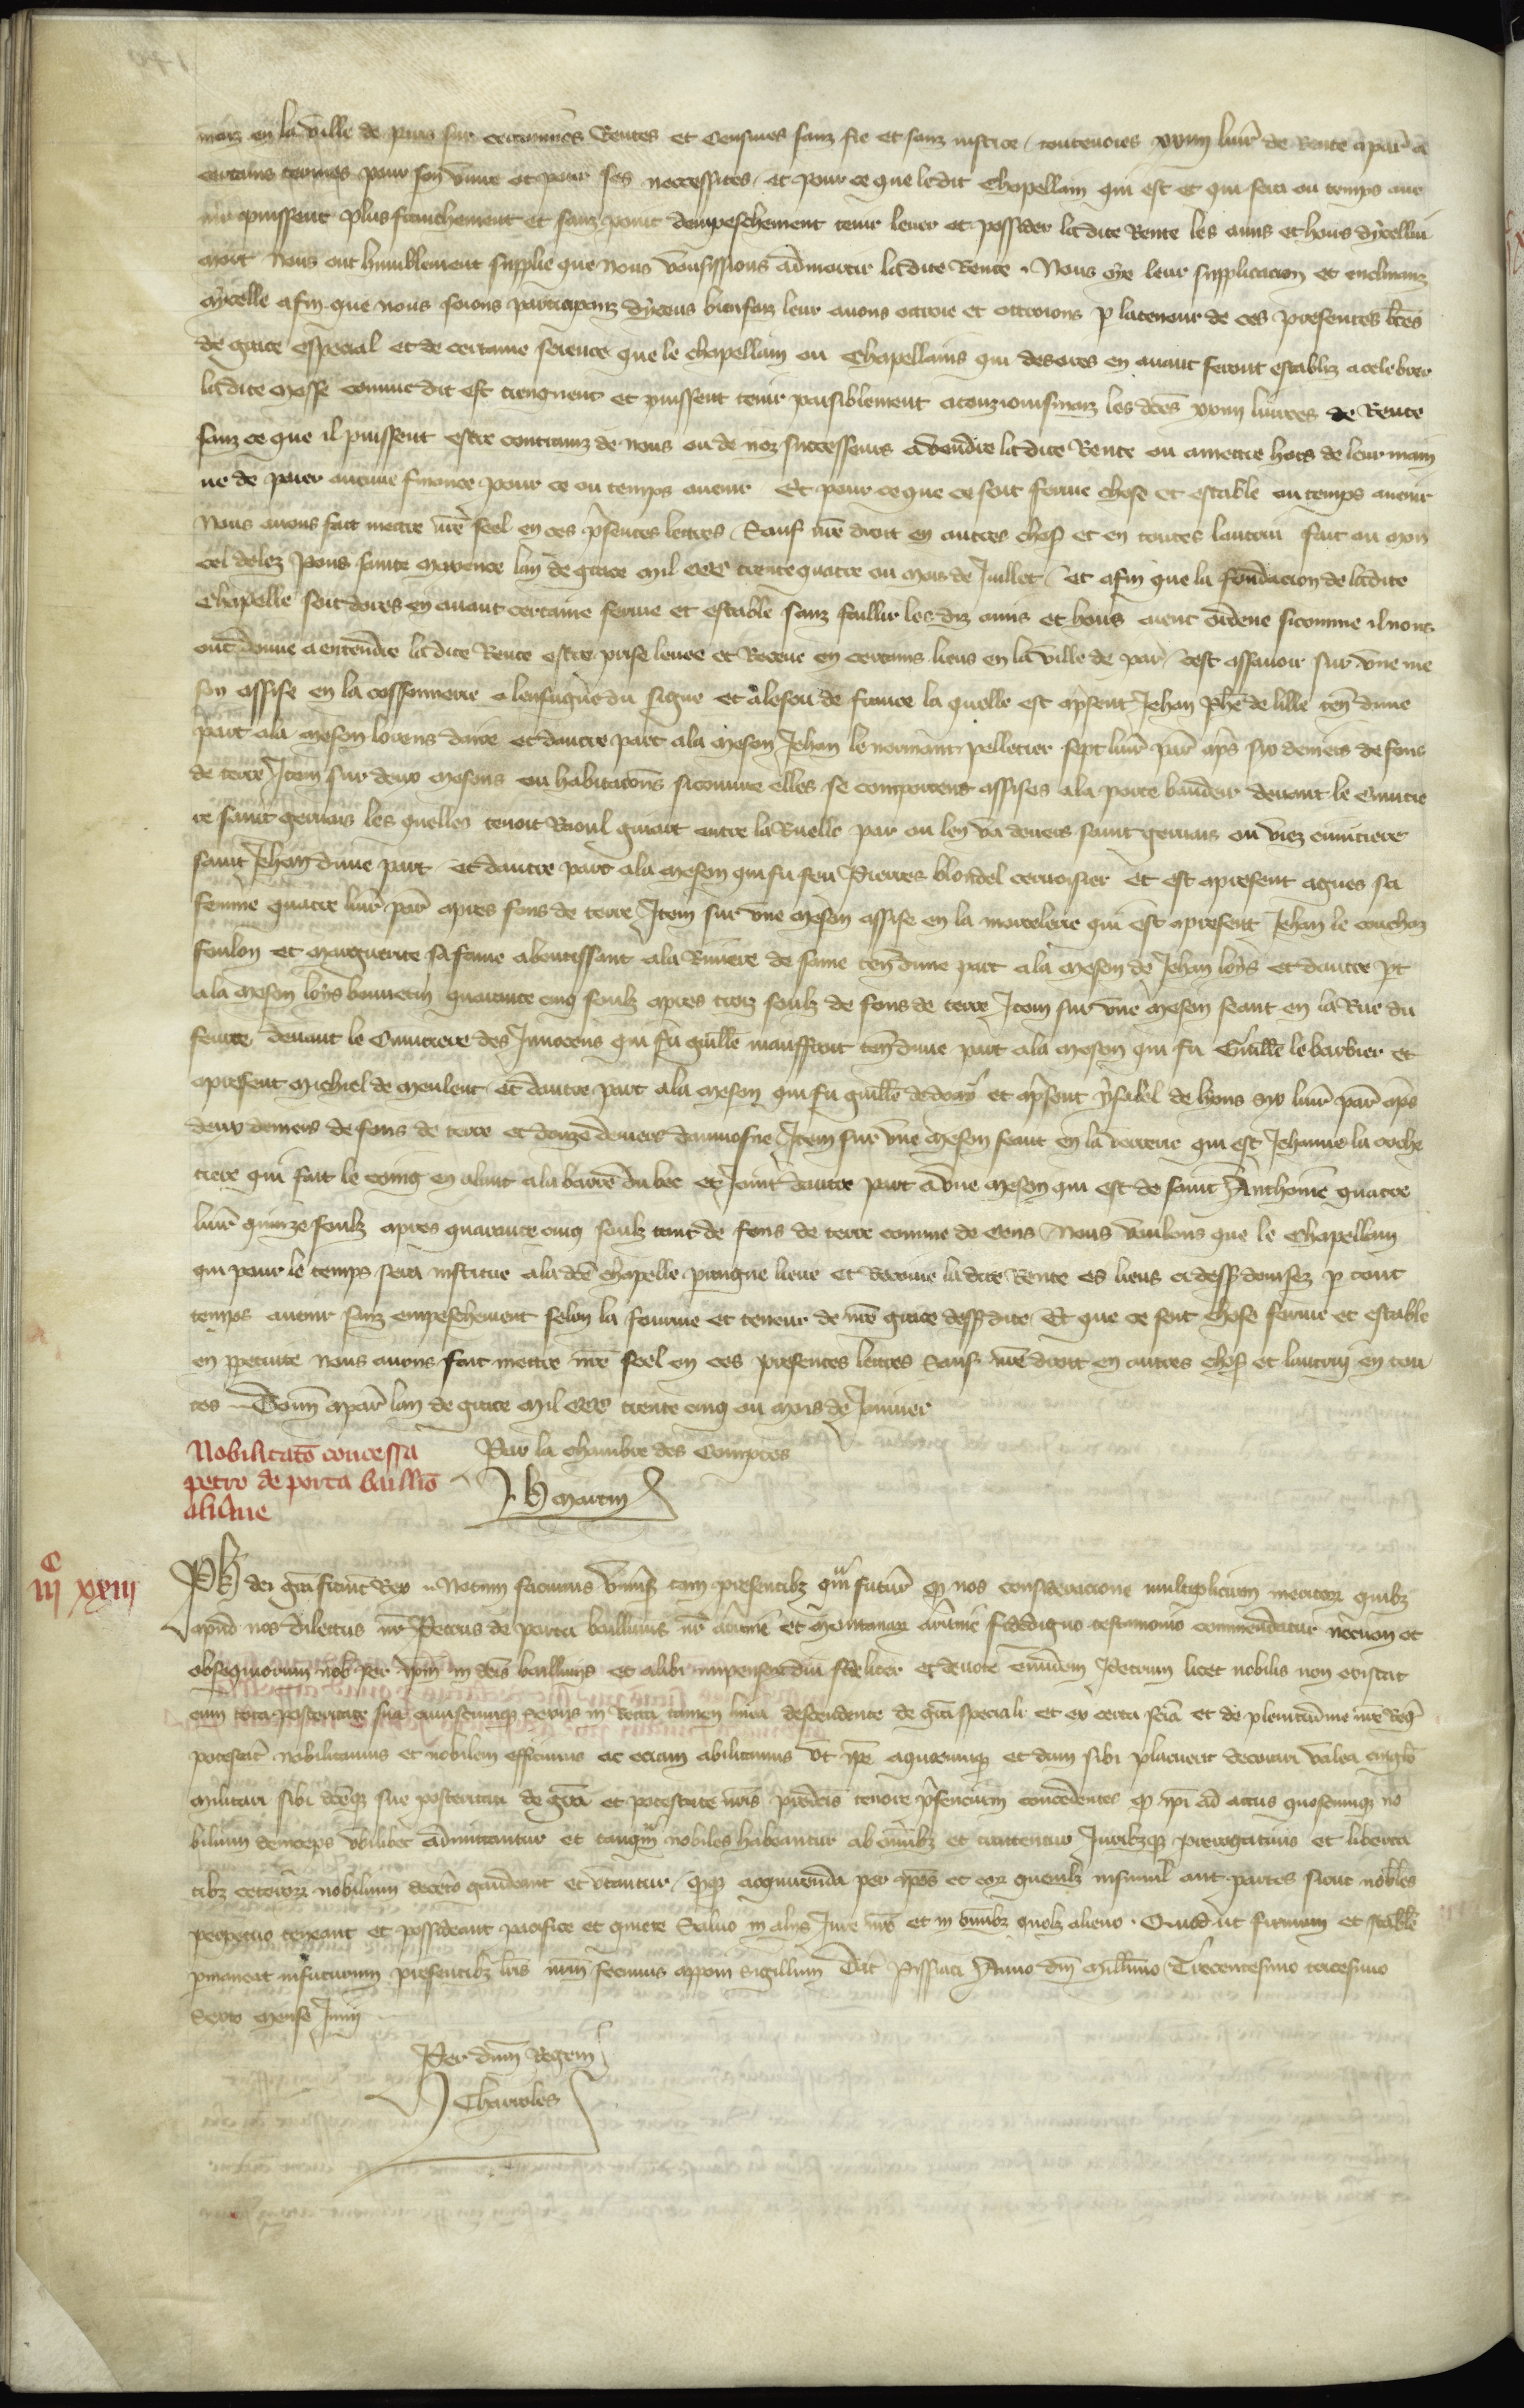 maiz en la ville de paris sur certaines Rentes et Censives sanz fie et sanz justice, contenoies xviii livr de Rente a par a
certains termes pour son vivre et pour ses necessites, et pour ce que ledit Chapellain qui est et qui sera ou temps ave
nir puissent plus franchement et sanz point dempeschement tenir lever et posseder ladite Rente les amis et hoirs dycellui
mort Nous ont humblement supplie que nous vousissions admortir ladite Rente. Nous oye leur supplicacion et enclinanz
a ycelle afin que nous soions participanz dyceus bienfaiz leur avons ottroie et ottroions p la teneur de ces presentes lrẽs
de grace especial et de certaine science que le chapellain ou Chapellains qui des ores en avant seront establiz a celebrer
ladite messe comme dit est tiengnent et puissent tenir paisiblement a touzjoursmaiz les dẽs xviii livrees de Rente
sanz ce que il puissent estre contrainz de nous ou de noz successeurs a vendre ladite Rente ou a mettre hors de leur main
ne de paier aucune finance pour ce ou temps avenir Et pour ce que ce soit ferme chose et estable ou temps avenir
Nous avons fait mettre nrẽ seel en ces presentes lettres, Sauf nrẽ droit en autres choses et en toutes lautrui fait au mon
cel delez Pons sainte maxence lan de grace mil ccc trente quatre ou mois de Juillet, et afin que la fondacion de ladite
Chapelle soit dores en avant certaine ferme et estable sanz faillir les diz amis et hoirs aient ordene sicomme il nous
ont donne a entendre ladite Rente estre prise levee et Receue en certains lieus en la ville de par, cest assavoir sur une me
son assise en la cossonnerie a lenseigne du signe et a lescu de france la quelle est a present Jehan Phẽ de lille ten dune
part a la meson lorens daire et dautre part a la meson Jehan le normant pelletier sept livr par aps six deniers de fons
de terre Item sur deux mesons ou habitacions sicomme elles se comportent assises a la porte baudeir devant le Cimetie
re saint gervais les quelles tenoit Raoul guiart entre la Ruelle par ou len va devers saint gervais ou viez cimitiere
saint Jehan dune part et dautre part a la meson qui fu feu Pierres blondel cervoisier et est apresent agnes sa
femme quatre livr par apres fons de terre Item sur une meson assise en la mortelerie qui est apresent Jehan le couchaz
foulon et marguerite sa fame aboutissant a la Riviere de saine ten dune part a la meson de Jehan loys et dautre pt
a la meson loys bonnetin quarante cinq soulz apres trois soulz de fons de terre Item sur une meson seant en la Rue du
feurre devant le Cimetiere des Innocens qui fu guillẽ maussart ten dune part a la meson qui fu Guillẽ le barbier et
apresent michiel de meulent et dautre part a la meson qui fu guillẽ de doay et apresent ysabel de hons xiv livr par aps
deux deniers de fons de terre et douze deniers daumosne Item sur une meson seant en la verrerie qui est Jehanne la coche
tiere qui fait le coing en alant a la barre du bec et joint dautre part a une meson qui est de saint Anthoine quatre
livr quinze soulz apres quarante cinq soulz tant de fons de terre comme de Cens Nous voulons que le Chapellain
qui pour le temps sera institue a la dẽ chapelle praigne lieve et Recoive ladite Rente es lieus ci dessus devisez p tout
temps avenir sanz empeschement selon la fourme et teneur de nrẽ grace dessusdite, Et que ce soit chose ferme et estable
en perpetuite nous avons fait mettre nrẽ seel en ces presentes lettres sauf nrẽ droit en autres choses et lautrui en tou
tes Donn a par lan de grace mil ccc trente cinq ou mois de Janvier
Par la chambre des Comptes
J. h martin
Nobilitatõ concessa
petro de porta baillio
alvnie
c
iii xxiii
Ph dei grã francor Rex Notum facimus univers tam presentibz qm futur qd nos consideracione multiplicium meritor quibz
apud nos dilectus nr Petrus de porta baillivus nr alvnie et montanar alvnie fidedigno testimonio commendatur necnon et
obsequiorum nob per ipm in dcis bailliviis et alibi impensor diu fideliter et devote eundem Petrum licet nobilis non existat
cum tota posteritate sua cuiuscumqz sexus in Recta tamen linea descendente de grã speciali et ex certa scia et de plenitudine nrẽ Reg
potestat nobilitamus et nobilem efficimus ac eciam abilitamus ut ipe a quocumqz et dum sibi placuerit decorari valeat cinglo
militari sibi dceqz sue posteritati de grã et potestate nris predcis tenore presencium concedentes qd ipi ad actus quoscumqz no
bilium deinceps ubilibet admittantur et tanqm nobiles habeantur ab omibz et tractentur Juribzqz prerogativis et liberta
tibz ceteror nobilium decetero gaudeant et utantur, quodqz acquirenda per ipos et eor quemlz insimul aut partes sicut nobiles
perpetuo teneant et possideant pacifice et quiete Salvo in aliis Jure nrõ et in omibz quolz alieno. Quod ut firmum et stabile
pmaneat in futurum presentibz lris nrm fecimus apponi sigillum Dat Pissiaci Anno dni millimo Trecentesimo tricesimo
Sexto mense Junii
Per dnm Regem
J Charroles